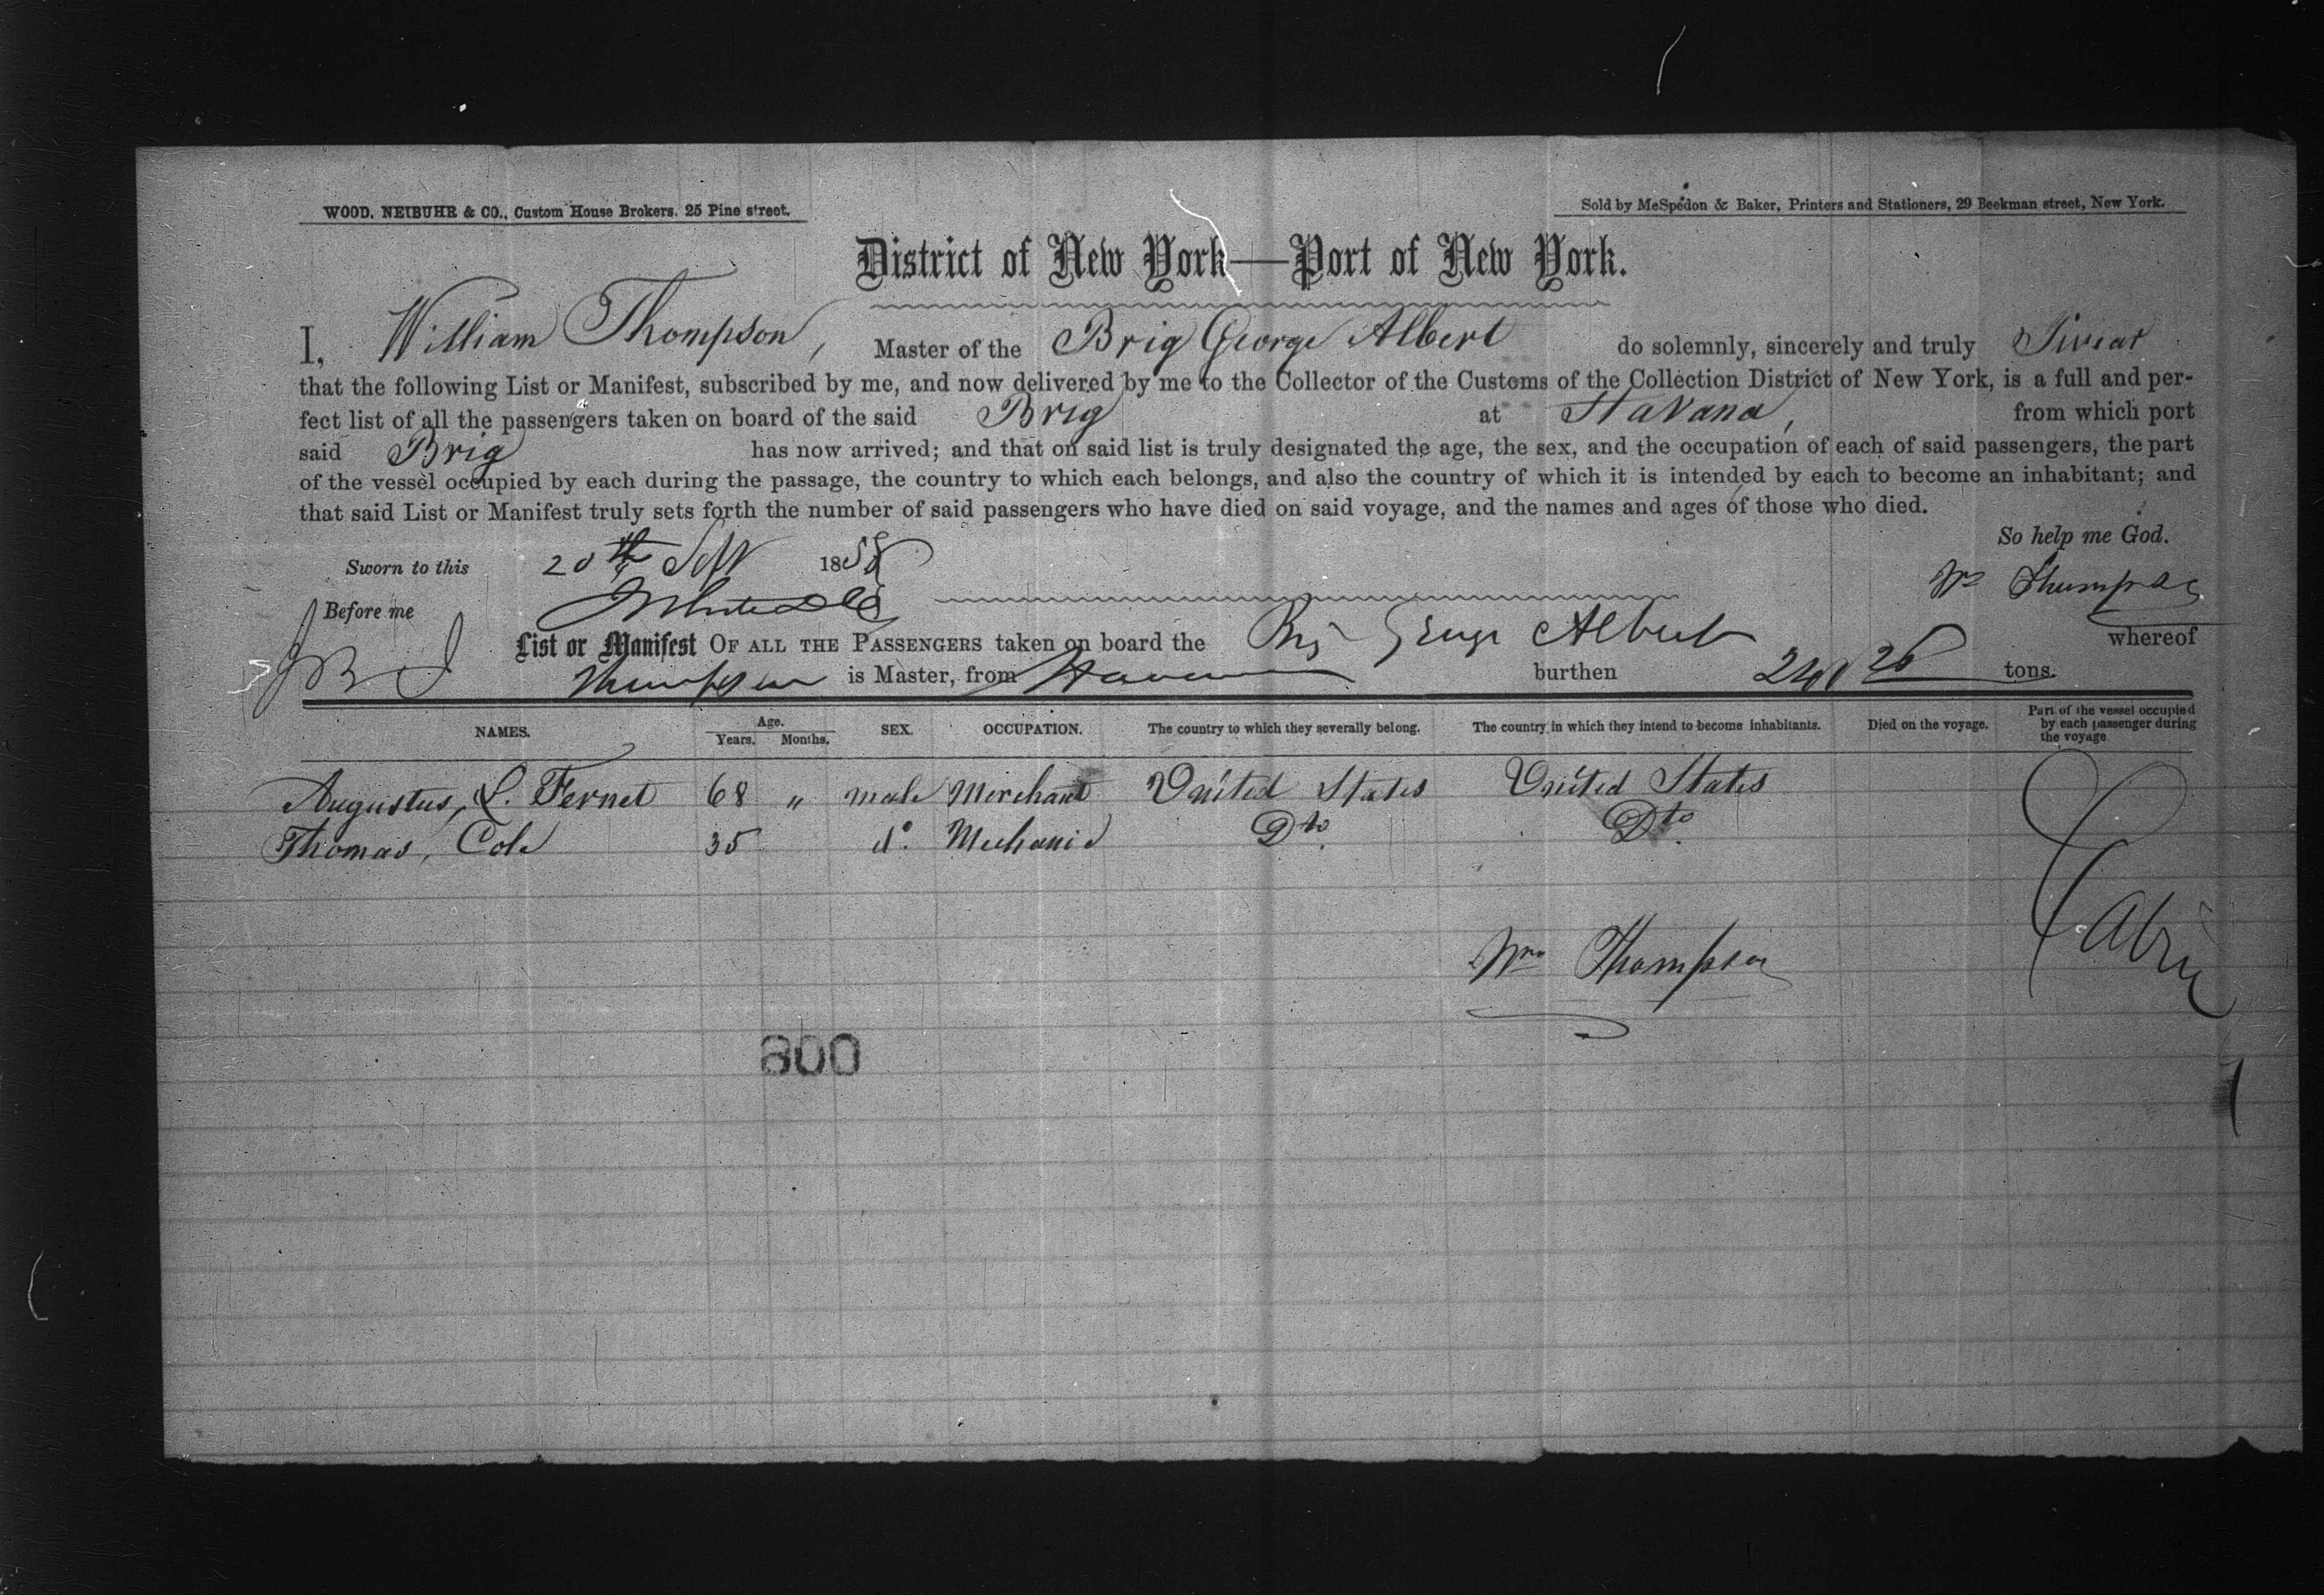 WOOD, NEIBUHR & CO., Custom House Brokers. 25 Pine street.
Sold by McSpedon & Baker, Printers and Stationers, 29 Beekman street, New York.
District of New York—Port of New York.
I, William Thompson, Master of the Brig George Albert do solemnly, sincerely and truly Swear
that the following List or Manifest, subscribed by me, and now delivered by me to the Collector of the Customs of the Collection District of New York, is a full and per-
fect list of all the passengers taken on board of the said Brig at Havana, from which port
said Brig has now arrived; and that on said list is truly designated the age, the sex, and the occupation of each of said passengers, the part
of the vessel occupied by each during the passage, the country to which each belongs, and also the country of which it is intended by each to become an inhabitant; and
that said List or Manifest truly sets forth the number of said passengers who have died on said voyage, and the names and ages of those who died.
So help me God.
Sworn to this 20th Sept 1858
Wm Thompson
Before me
List or Manifest OF ALL THE PASSENGERS taken on board the Brig George Albert whereof
Thompson is Master, from Havana burthen 26 tons.
NAMES. Age. Years. Months. SEX. OCCUPATION. The country to which they severally belong. The country in which they intend to become inhabitants. Died on the voyage. Part of the vessel occupied by each passenger during the voyage
Augustus, L. Fernet 68 " male Merchant United States United States
Thomas, Cole 35 do. Mechanic Dto. Dto.
Cabin
Wm Thompson
800